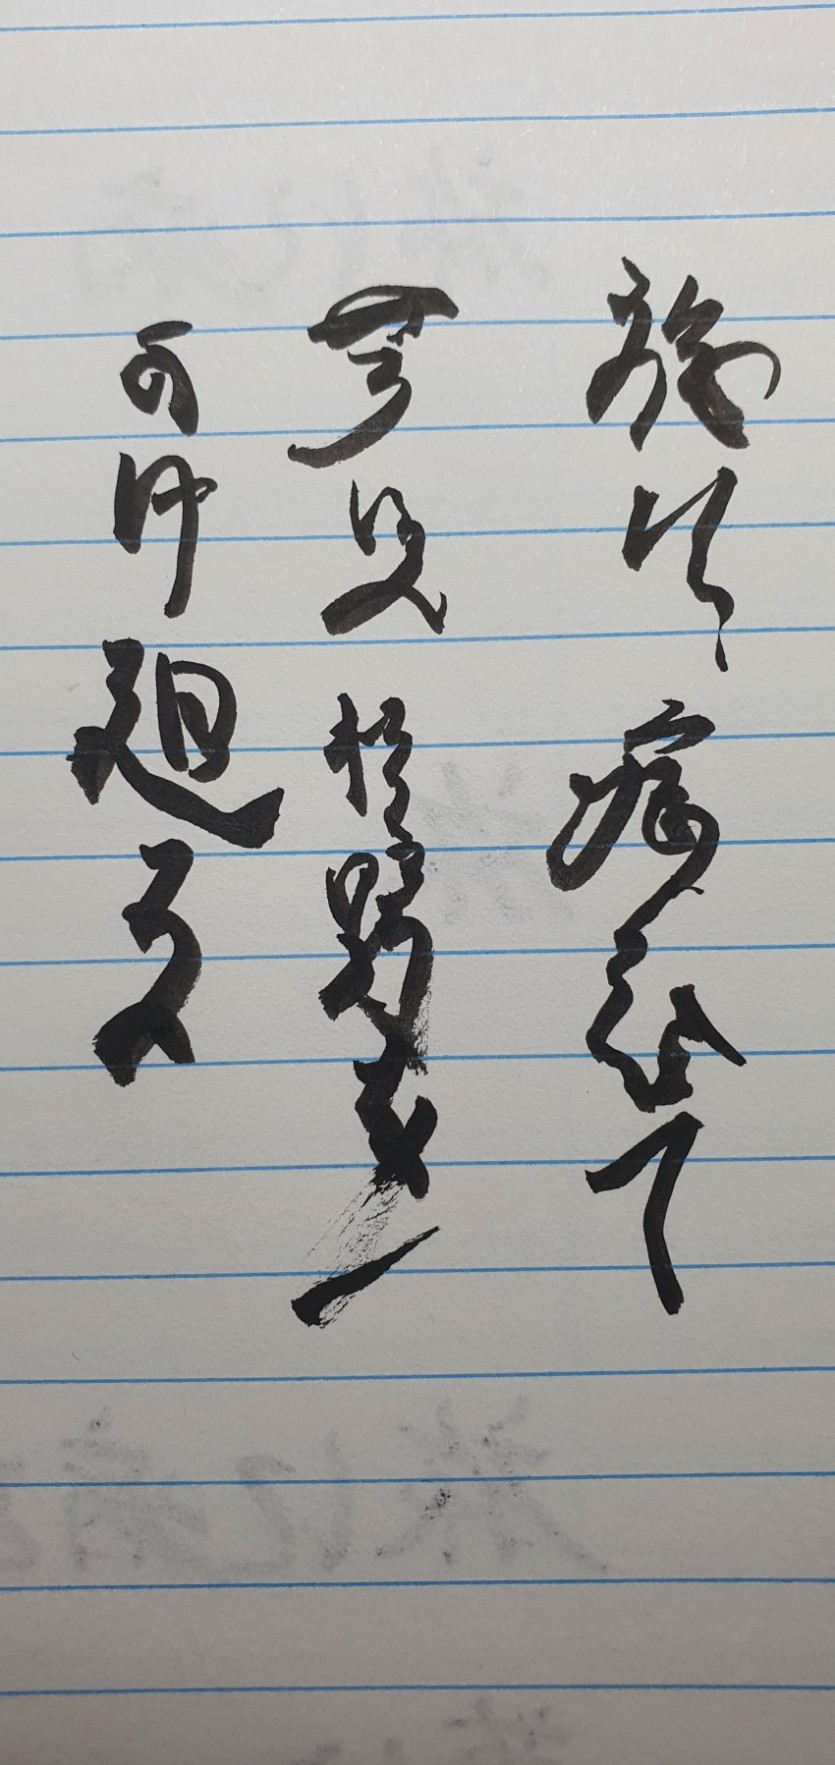 旅に病んて
夢は枯野を
かけ廻る